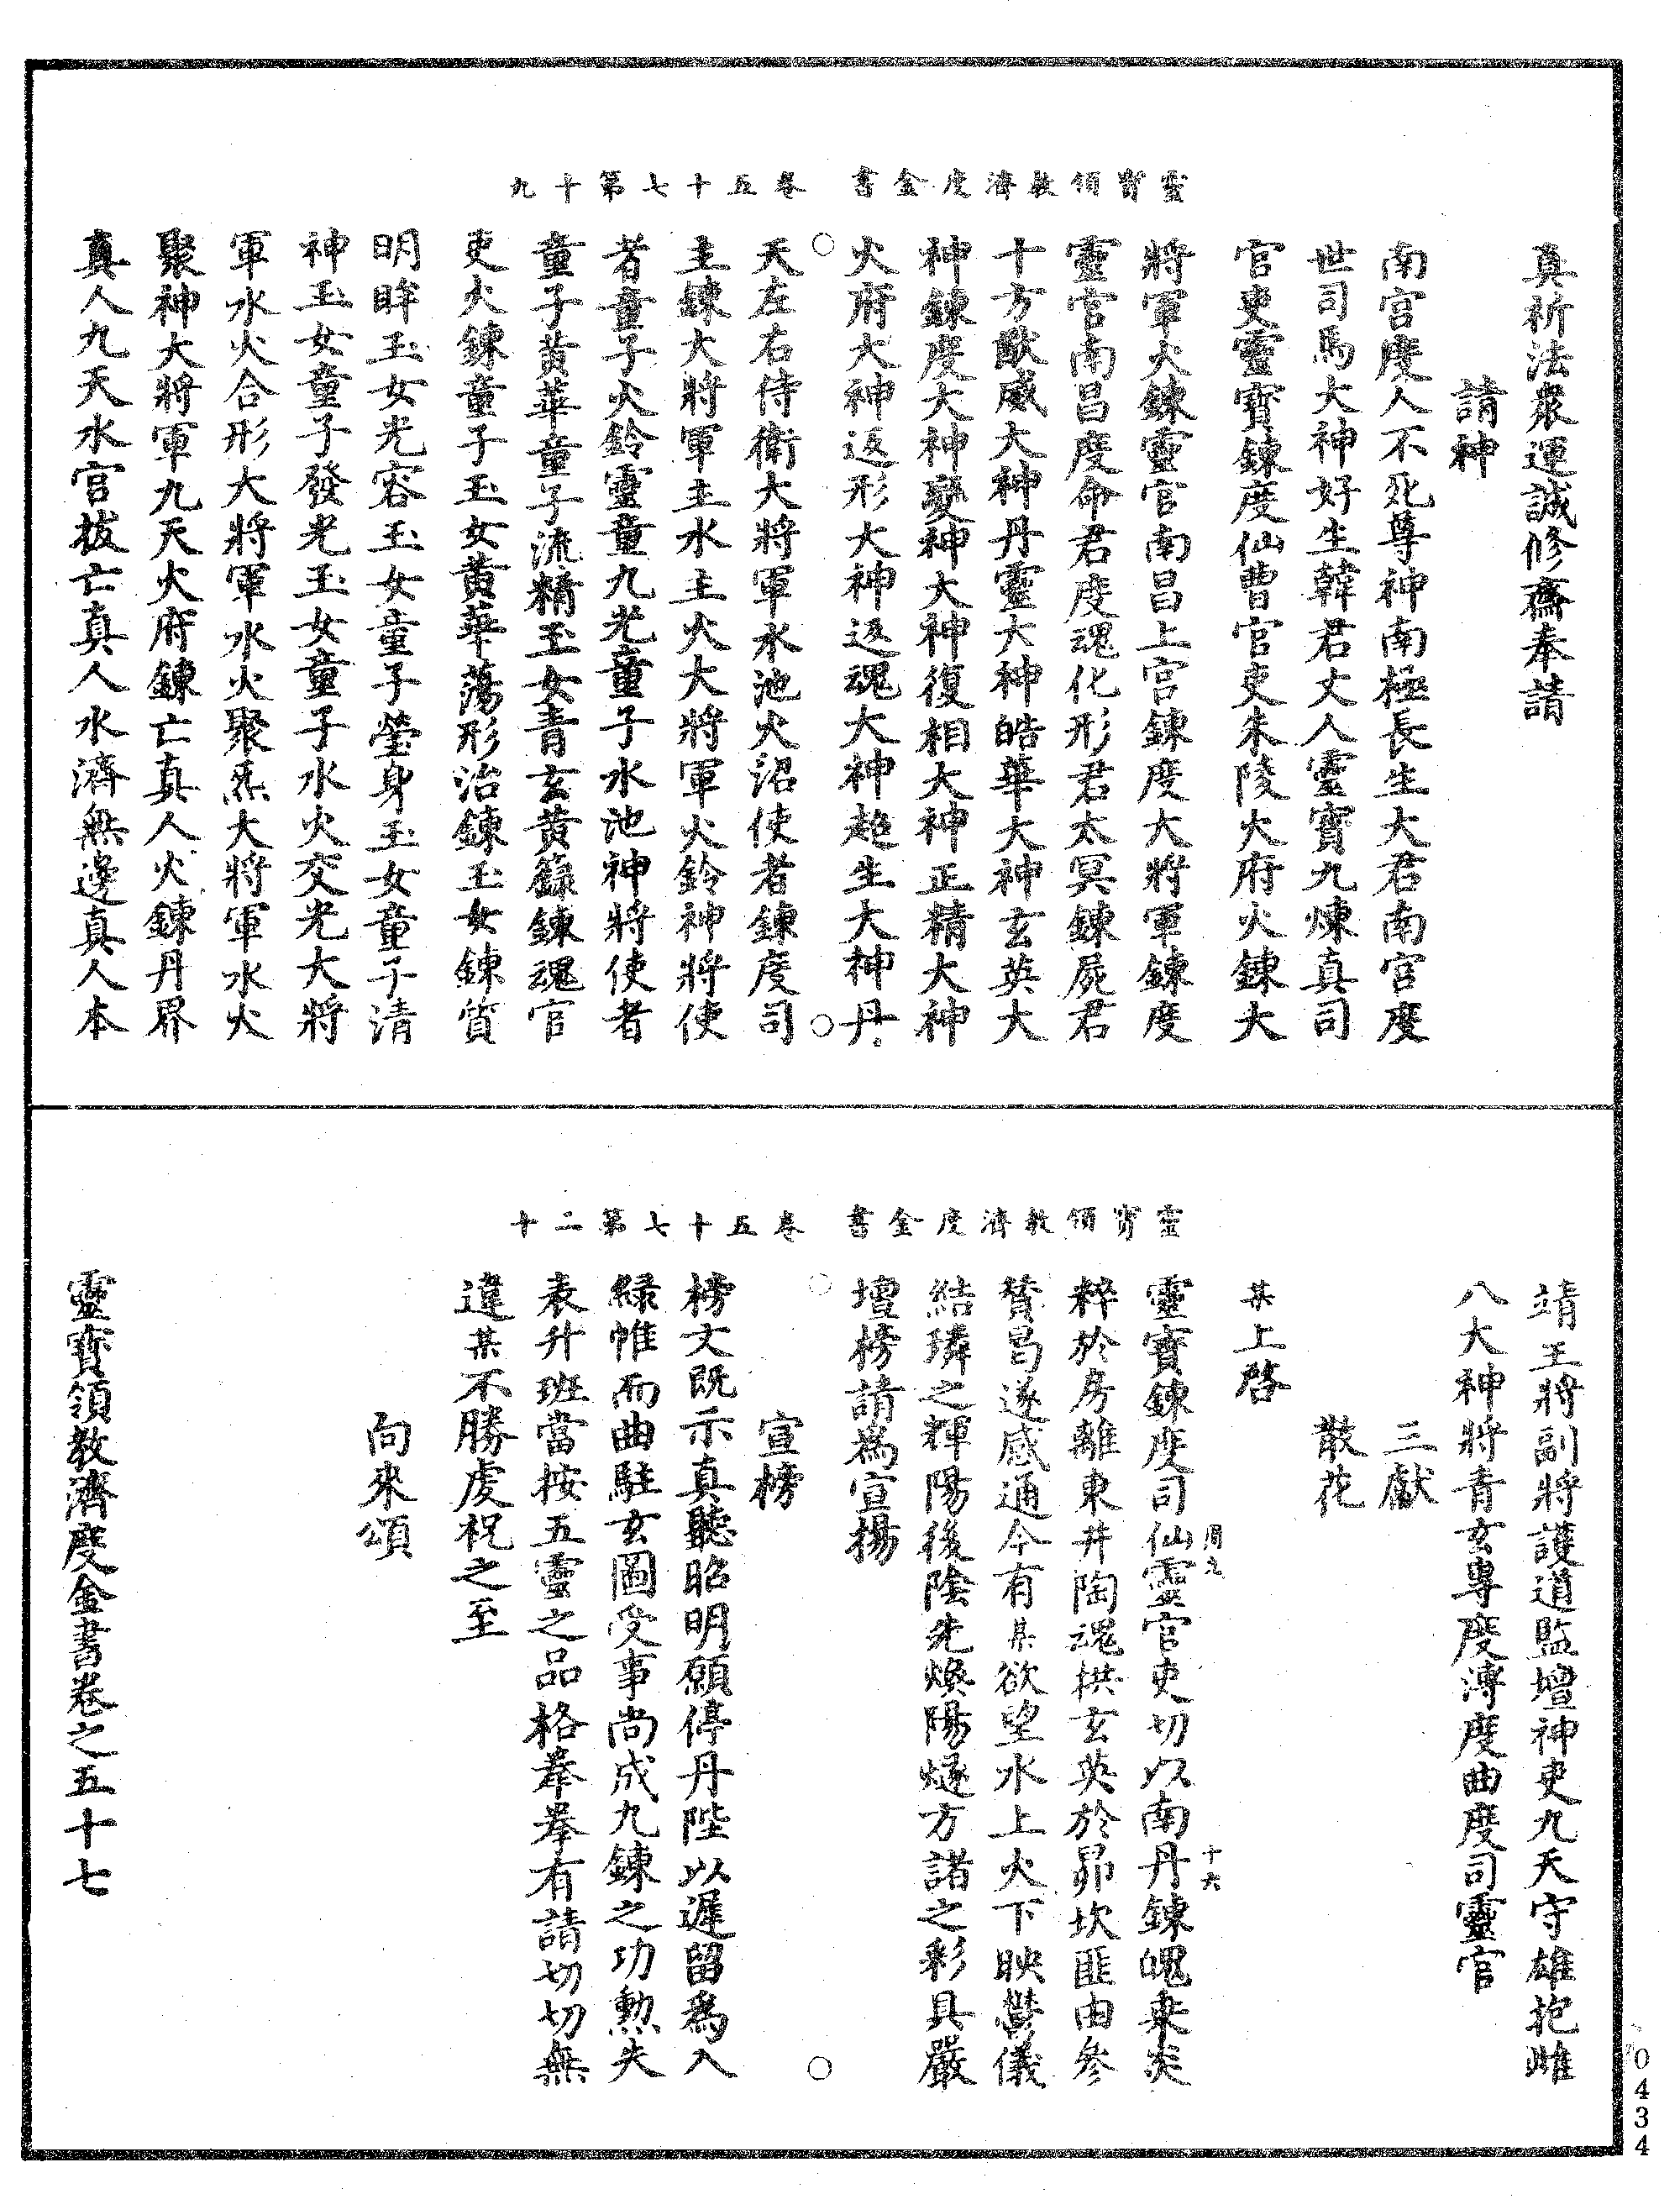 靈寶領教濟度金書　卷五十七第十九
真祈法衆運誠修齋奉請
請神
南宮度人不死尊神南極長生大君南宮度
世司馬大神好生韓君丈人靈寶九煉真司
官吏靈寶鍊度仙曹官吏朱陵火府火鍊大
將軍火鍊靈官南昌上宮鍊度大將軍鍊度
靈官南昌度命君度魂化形君太冥鍊屍君
十方歐威大神丹靈大神皓華大神玄英大
神鍊度大神變神大神復相大神正精大神
火府大神返形大神返魂大神超生大神丹
天左右侍衛大將軍水池火沼使者鍊度司
主鍊大將軍主水主火大將軍火鈴神將使
者童子火鈴靈童九光童子水池神將使者
童子黃華童子流精玉女青玄黃籙鍊魂官
吏火鍊童子玉女黃華蕩形治鍊玉女鍊質
明眸玉女光容玉女童子瑩身玉女童子清
神玉女童子發光玉女童子水火交光大將
軍水火合形大將軍水火聚炁大將軍水火
聚神大將軍九天火府鍊亡真人火鍊丹界
真人九天水官拔亡真人水濟無邊真人本
靈寶領教濟度金書　卷五十七第二十
靖王將副將護道監壇神吏九天守雄抱雌
八大神將青玄專度溥度曲度司靈官
三獻
散花
某上啓
靈寶鍊度司仙靈官吏切以南丹鍊魄秉炎
粹於房離東井陶魂拱玄英於昴坎匪由參
贊曷遂感通今有某欲望水上火下映鬱儀
結璘之輝陽後陰先煥陽燧方諸之彩具嚴
壇榜請爲宣揚
宣榜
榜文既示真聽昭明願停丹陛以遲留爲入
緑帷而曲駐玄圖受事尚成九鍊之功勲失
表升班當按五靈之品格拳拳有請切切無
違某不勝虔祝之至
向來頌
靈寶領教濟度金書卷之五十七
十六
0434